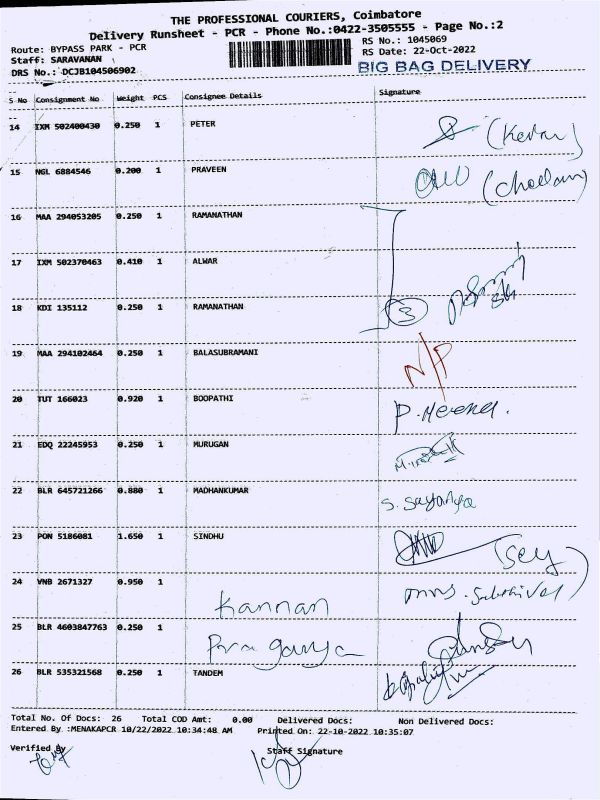 THE PROFESSIONAL COURIERS, Coimbatore
Delivery Runsheet - PCR - Phone No.:0422-3505555 - Page No.:2
Route: BYPASS PARK - PCR RS No.: 1045069
Staff: SARAVANAN RS Date: 22-Oct-2022
DRS No.: DCJB104506902 BIG BAG DELIVERY
S No Consignment No Weight PCS Consignee Details Signature
14 IXM 502400430 0.250 1 PETER
15 NGL 6884546 0.200 1 PRAVEEN
16 MAA 294053205 0.250 1 RAMANATHAN
17 IXM 502370463 0.410 1 ALWAR
18 KDI 135112 0.250 1 RAMANATHAN 3
19 MAA 294102464 0.250 1 BALASUBRAMANI N/P
20 TUT 166023 0.920 1 BOOPATHI P. Meena.
21 EDQ 22245953 0.250 1 MURUGAN
22 BLR 645721266 0.880 1 MADHANKUMAR S.
23 PON 5186081 1.650 1 SINDHU
24 VNB 2671327 0.950 1 Kannan
25 BLR 4603847763 0.250 1
26 BLR 535321568 0.250 1 TANDEM
Total No. Of Docs: 26 Total COD Amt: 0.00 Delivered Docs: Non Delivered Docs:
Entered By :MENAKAPCR 10/22/2022 10:34:48 AM Printed On: 22-10-2022 10:35:07
Verified By Staff Signature